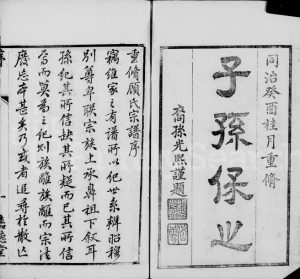 同治癸酉桂月重脩
子孫保之
裔孫光熙謹題
重脩顧氏宗譜序
竊維家之有譜所以紀世系辨昭穆
別尊卑聯宗族上承鼻祖下敘耳
孫紀其所信缺其所疑而已其所信
焉而莫為之紀則族雖族離而宗法
廢忘本甚矣乃或者追尋於散佚